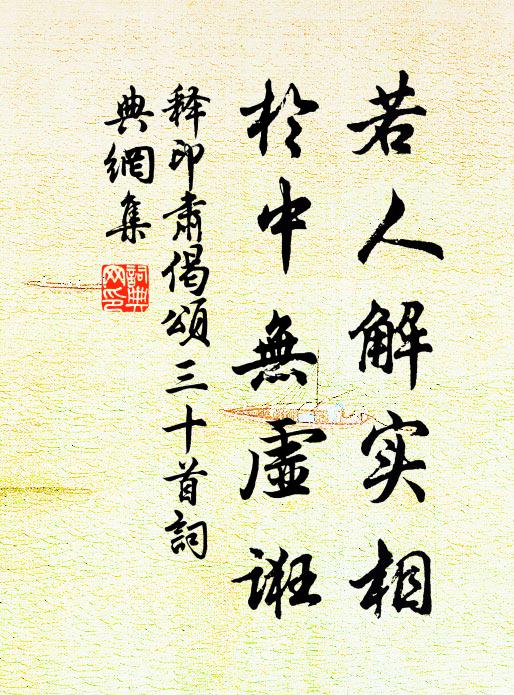 若人解实相
於中無虛誑
释印肃偈頌三十首詞
典網集
詞典网印